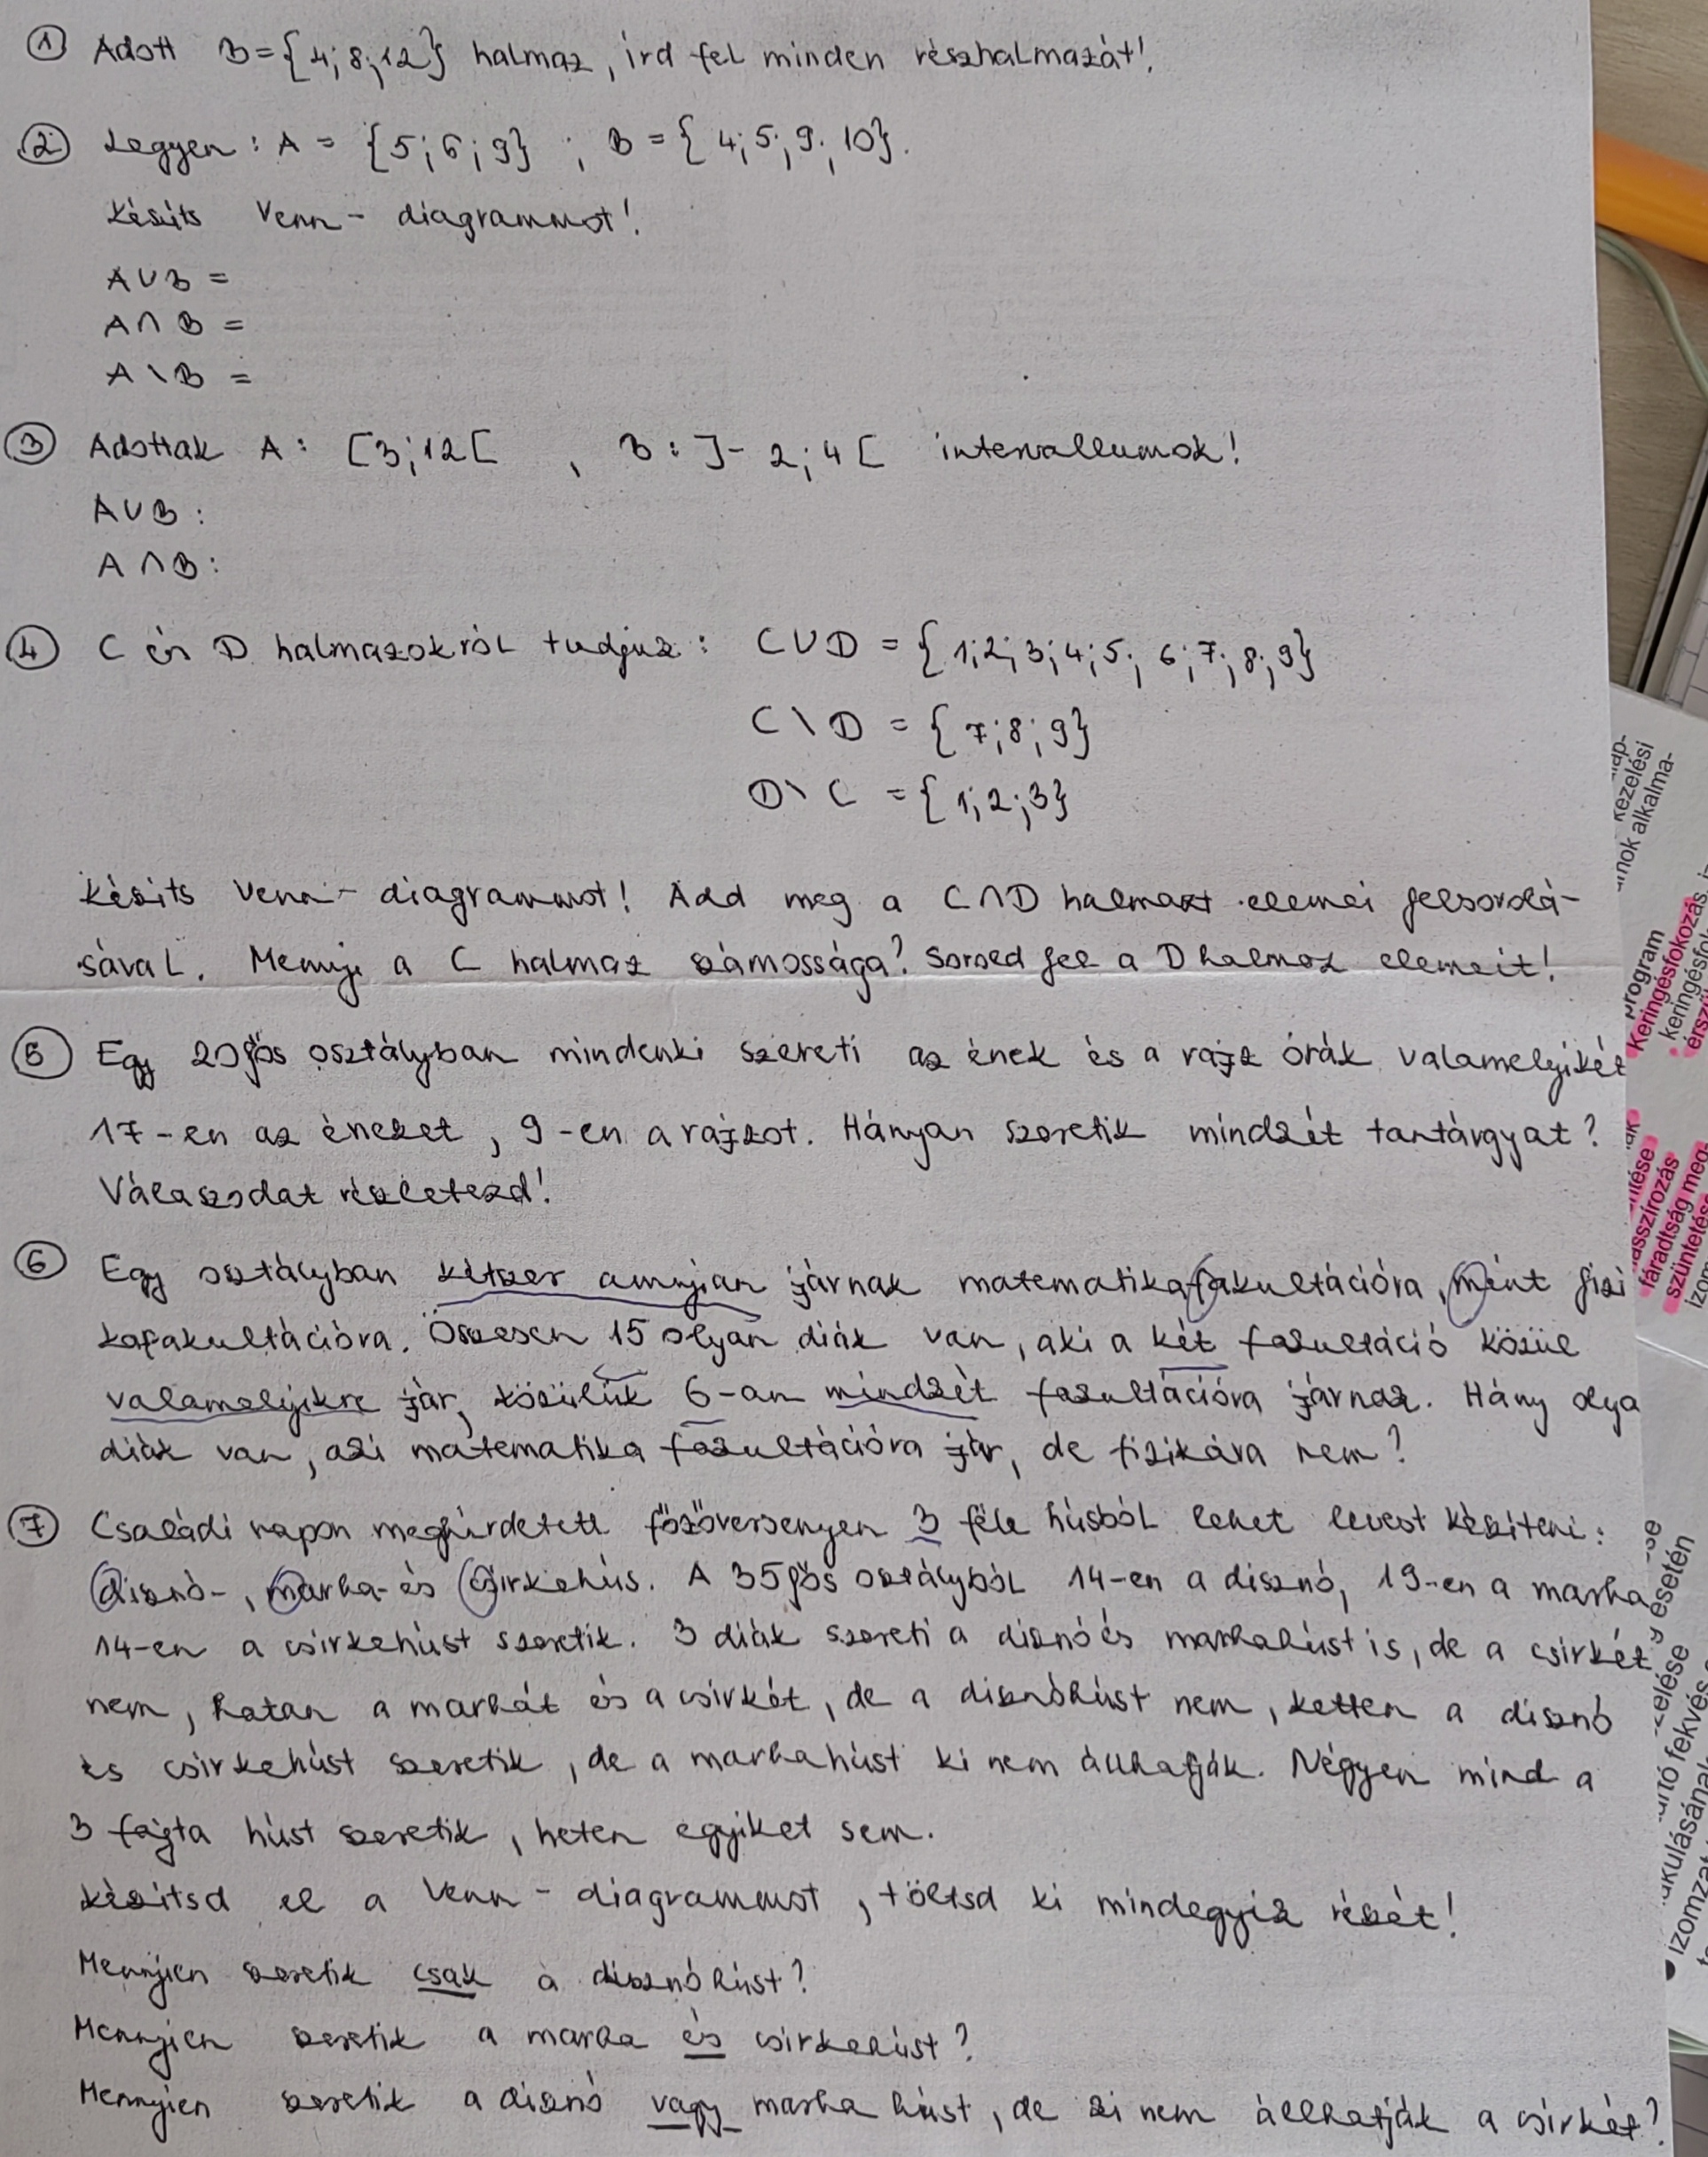 ① Adott B={4;8;12} halmaz, írd fel minden részhalmazát!
② Legyen: A = {5;6;9} ; B = {4;5;9;10}.
Készíts Venn-diagrammot!
A∪B =
A∩B =
A\B =
③ Adottak A: [3;12[ , B: ]-2;4[ intervallumok!
A∪B:
A∩B:
④ C és D halmazokról tudjuk: C∪D = {1;2;3;4;5; 6;7;8;9}
C\D = {7;8;9}
D\C = {1;2;3}
Készíts Venn-diagrammot! Add meg a C∩D halmazt elemei felsorolá-
sával. Mennyi a C halmaz számossága? Sorold fel a D halmaz elemeit!
⑤ Egy 20 fős osztályban mindenki szereti az ének és a rajz órák valamelyikét
17-en az éneket, 9-en a rajzot. Hányan szeretik mindkét tantárgyat?
Válaszodat részletezd!
⑥ Egy osztályban kétszer annyian járnak matematika fakultációra, mint fizi
kafakultációra. Összesen 15 olyan diák van, aki a két fakultáció közül
valamelyikre jár, közülük 6-an mindkét fakultációra járnak. Hány olya
diák van, aki matematika fakultációra jár, de fizikára nem?
⑦ Családi napon meghirdetett főzőversenyen 3 féle húsból lehet levest készíteni:
disznó-, marha- és csirkehús. A 35 fős osztályból 14-en a disznó, 19-en a marha
14-en a csirkehúst szeretik. 3 diák szereti a disznó és marhahúst is, de a csirkét
nem, hatan a marhát és a csirkét, de a disznóhúst nem, ketten a disznó
és csirkehúst szeretik, de a marhahúst ki nem állhatják. Négyen mind a
3 fajta húst szeretik, heten egyiket sem.
Készítsd el a Venn-diagrammot, töltsd ki mindegyik részét!
Mennyien szeretik csak a disznóhúst?
Mennyien szeretik a marha és csirkehúst?
Mennyien szeretik a disznó vagy marha húst, de ki nem állhatják a csirkét?
kezelési
program
Keringésfokozás
fáradtság meg-
esetén